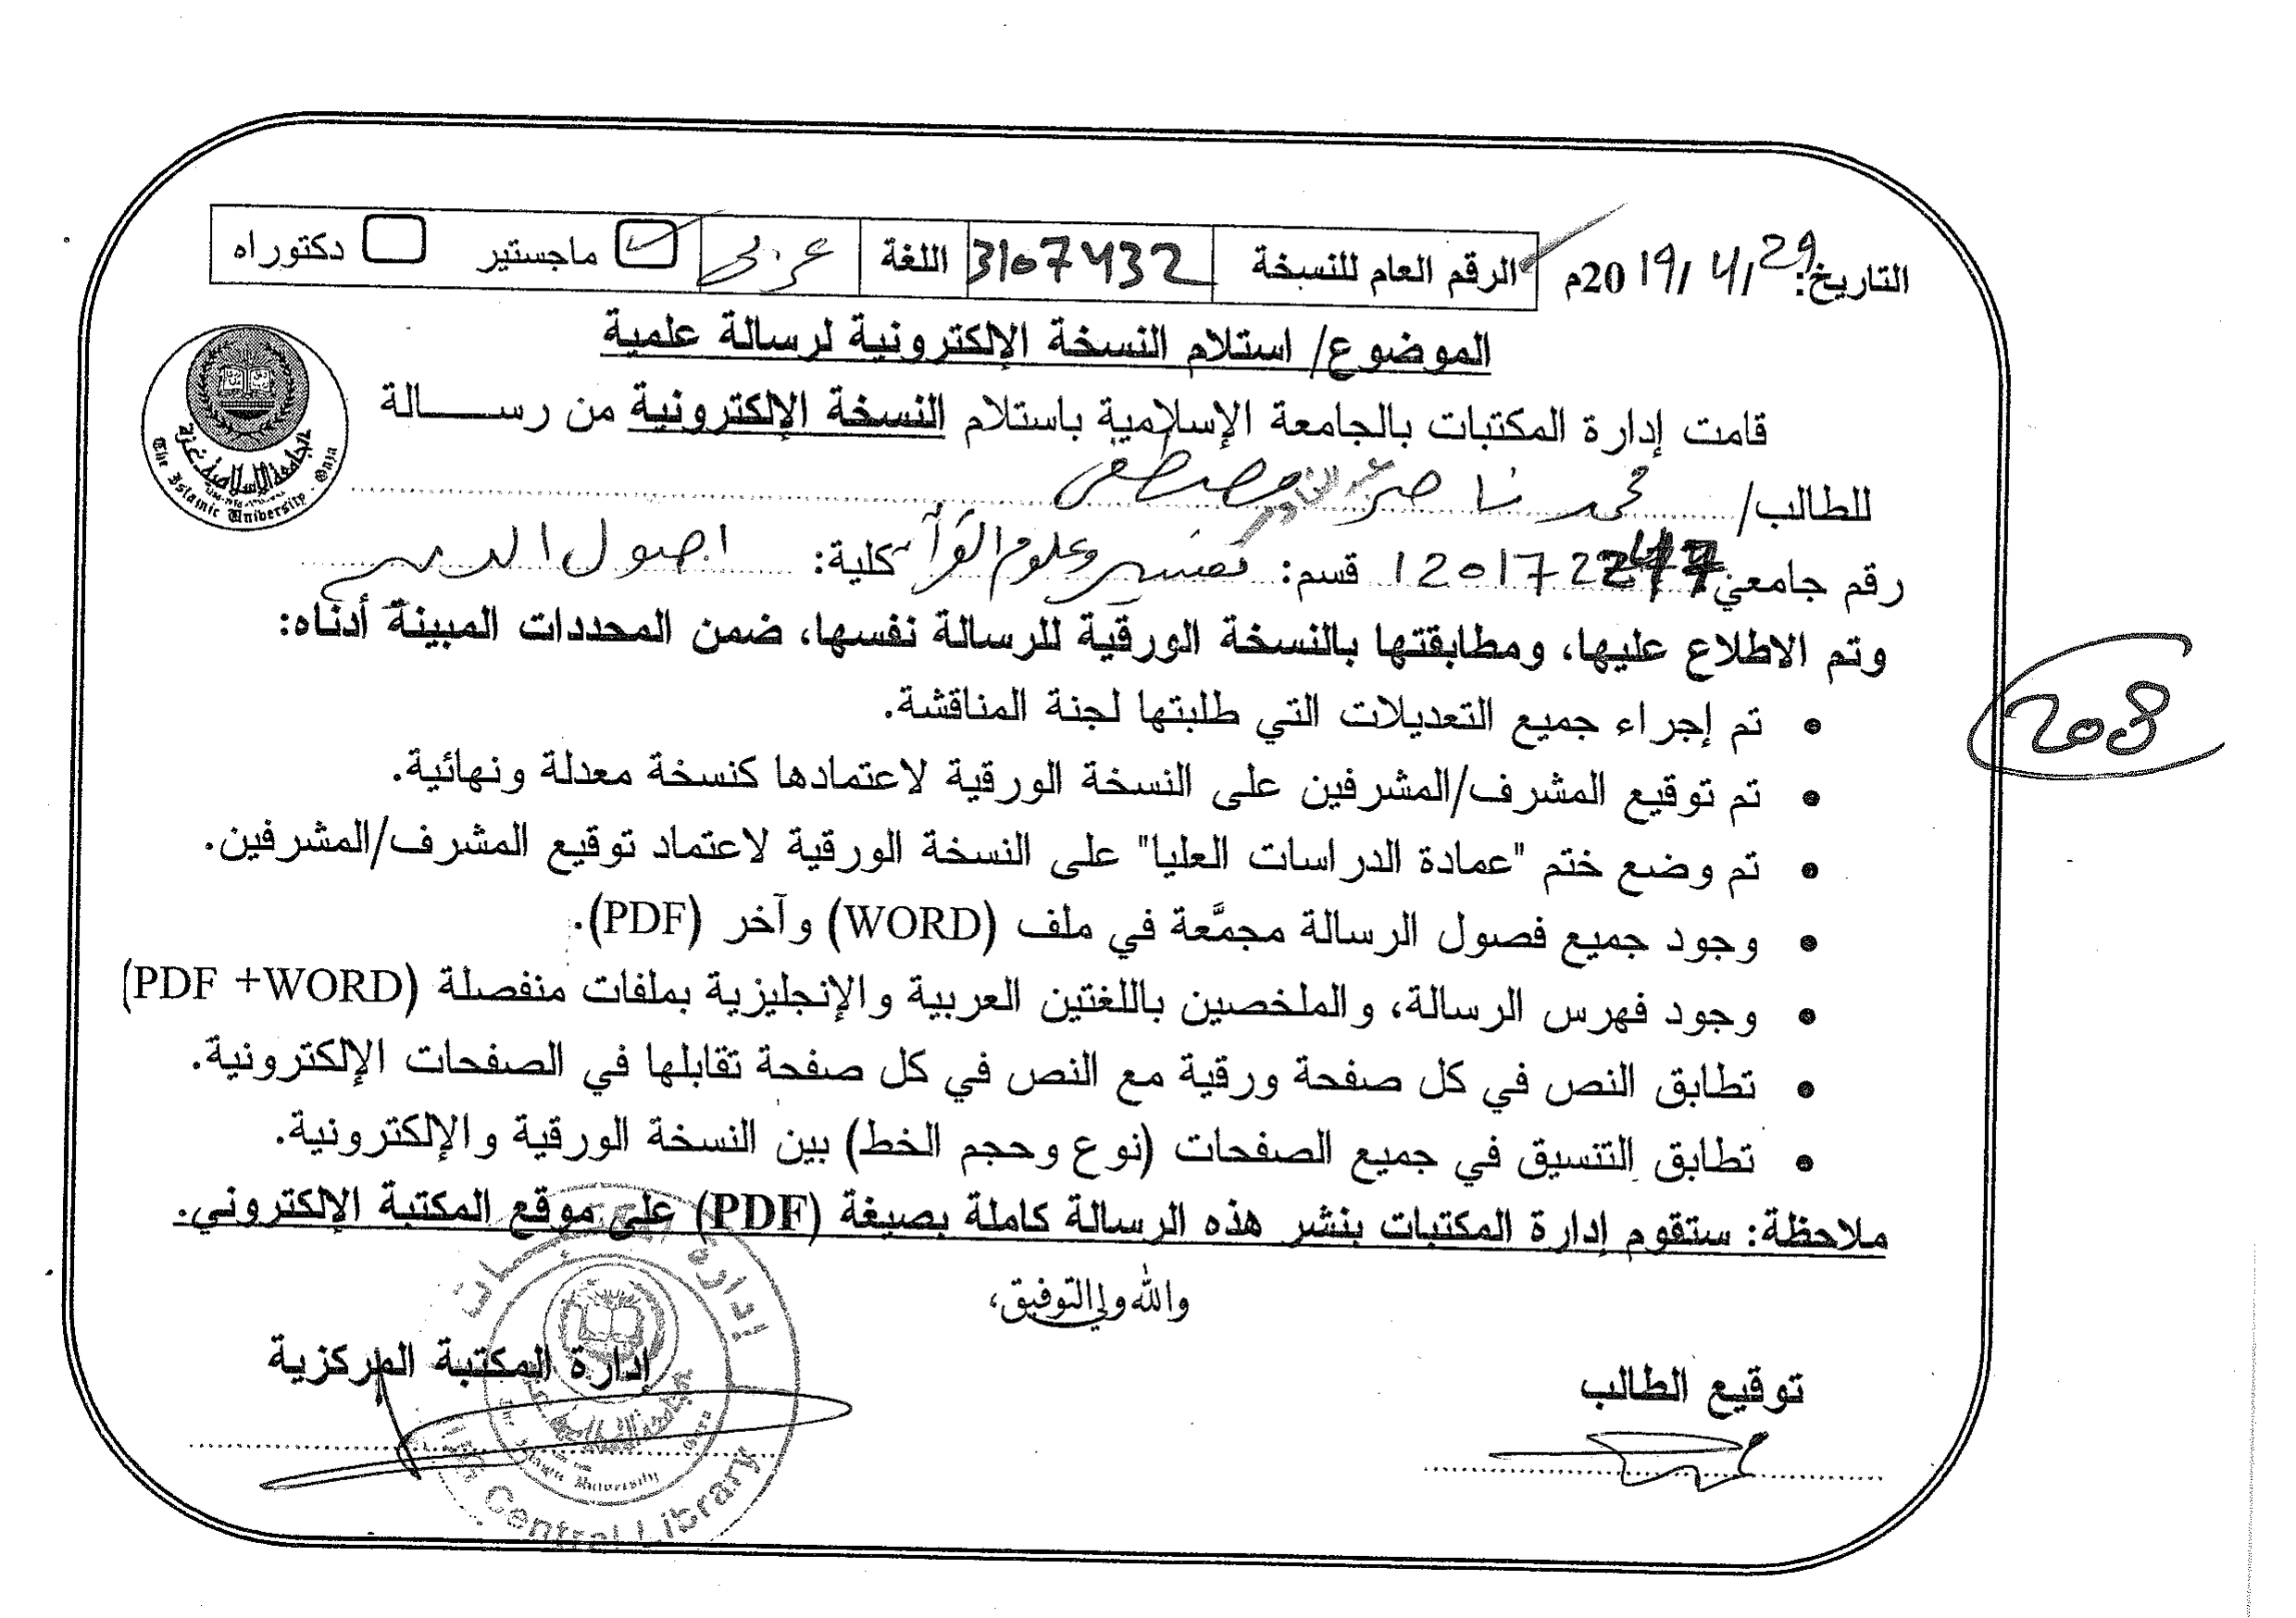 التاريخ: 29/4/2019م الرقم العام للنسخة 3107432 اللغة عربي ماجستير دكتوراه
الموضوع/ استلام النسخة الإلكترونية لرسالة علمية
قامت إدارة المكتبات بالجامعة الإسلامية باستلام النسخة الإلكترونية من رســـــالة
للطالب/ محمد ناصر مصطفى
رقم جامعي: قسم: تفسير وعلوم القرآن كلية: اصول الدين
وتم الاطلاع عليها، ومطابقتها بالنسخة الورقية للرسالة نفسها، ضمن المحددات المبينة أدناه:
• تم إجراء جميع التعديلات التي طلبتها لجنة المناقشة.
• تم توقيع المشرف/المشرفين على النسخة الورقية لاعتمادها كنسخة معدلة ونهائية.
• تم وضع ختم "عمادة الدراسات العليا" على النسخة الورقية لاعتماد توقيع المشرف/المشرفين.
• وجود جميع فصول الرسالة مجمَّعة في ملف (WORD) وآخر (PDF).
• وجود فهرس الرسالة، والملخصين باللغتين العربية والإنجليزية بملفات منفصلة (PDF +WORD)
• تطابق النص في كل صفحة ورقية مع النص في كل صفحة تقابلها في الصفحات الإلكترونية.
• تطابق التنسيق في جميع الصفحات (نوع وحجم الخط) بين النسخة الورقية والإلكترونية.
ملاحظة: ستقوم إدارة المكتبات بنشر هذه الرسالة كاملة بصيغة (PDF) على موقع المكتبة الإلكتروني.
والله ولي التوفيق،
توقيع الطالب إدارة المكتبة المركزية
208
الجامعة الإسلامية بغزة
The Islamic University - Gaza
إدارة المكتبات
Central Library